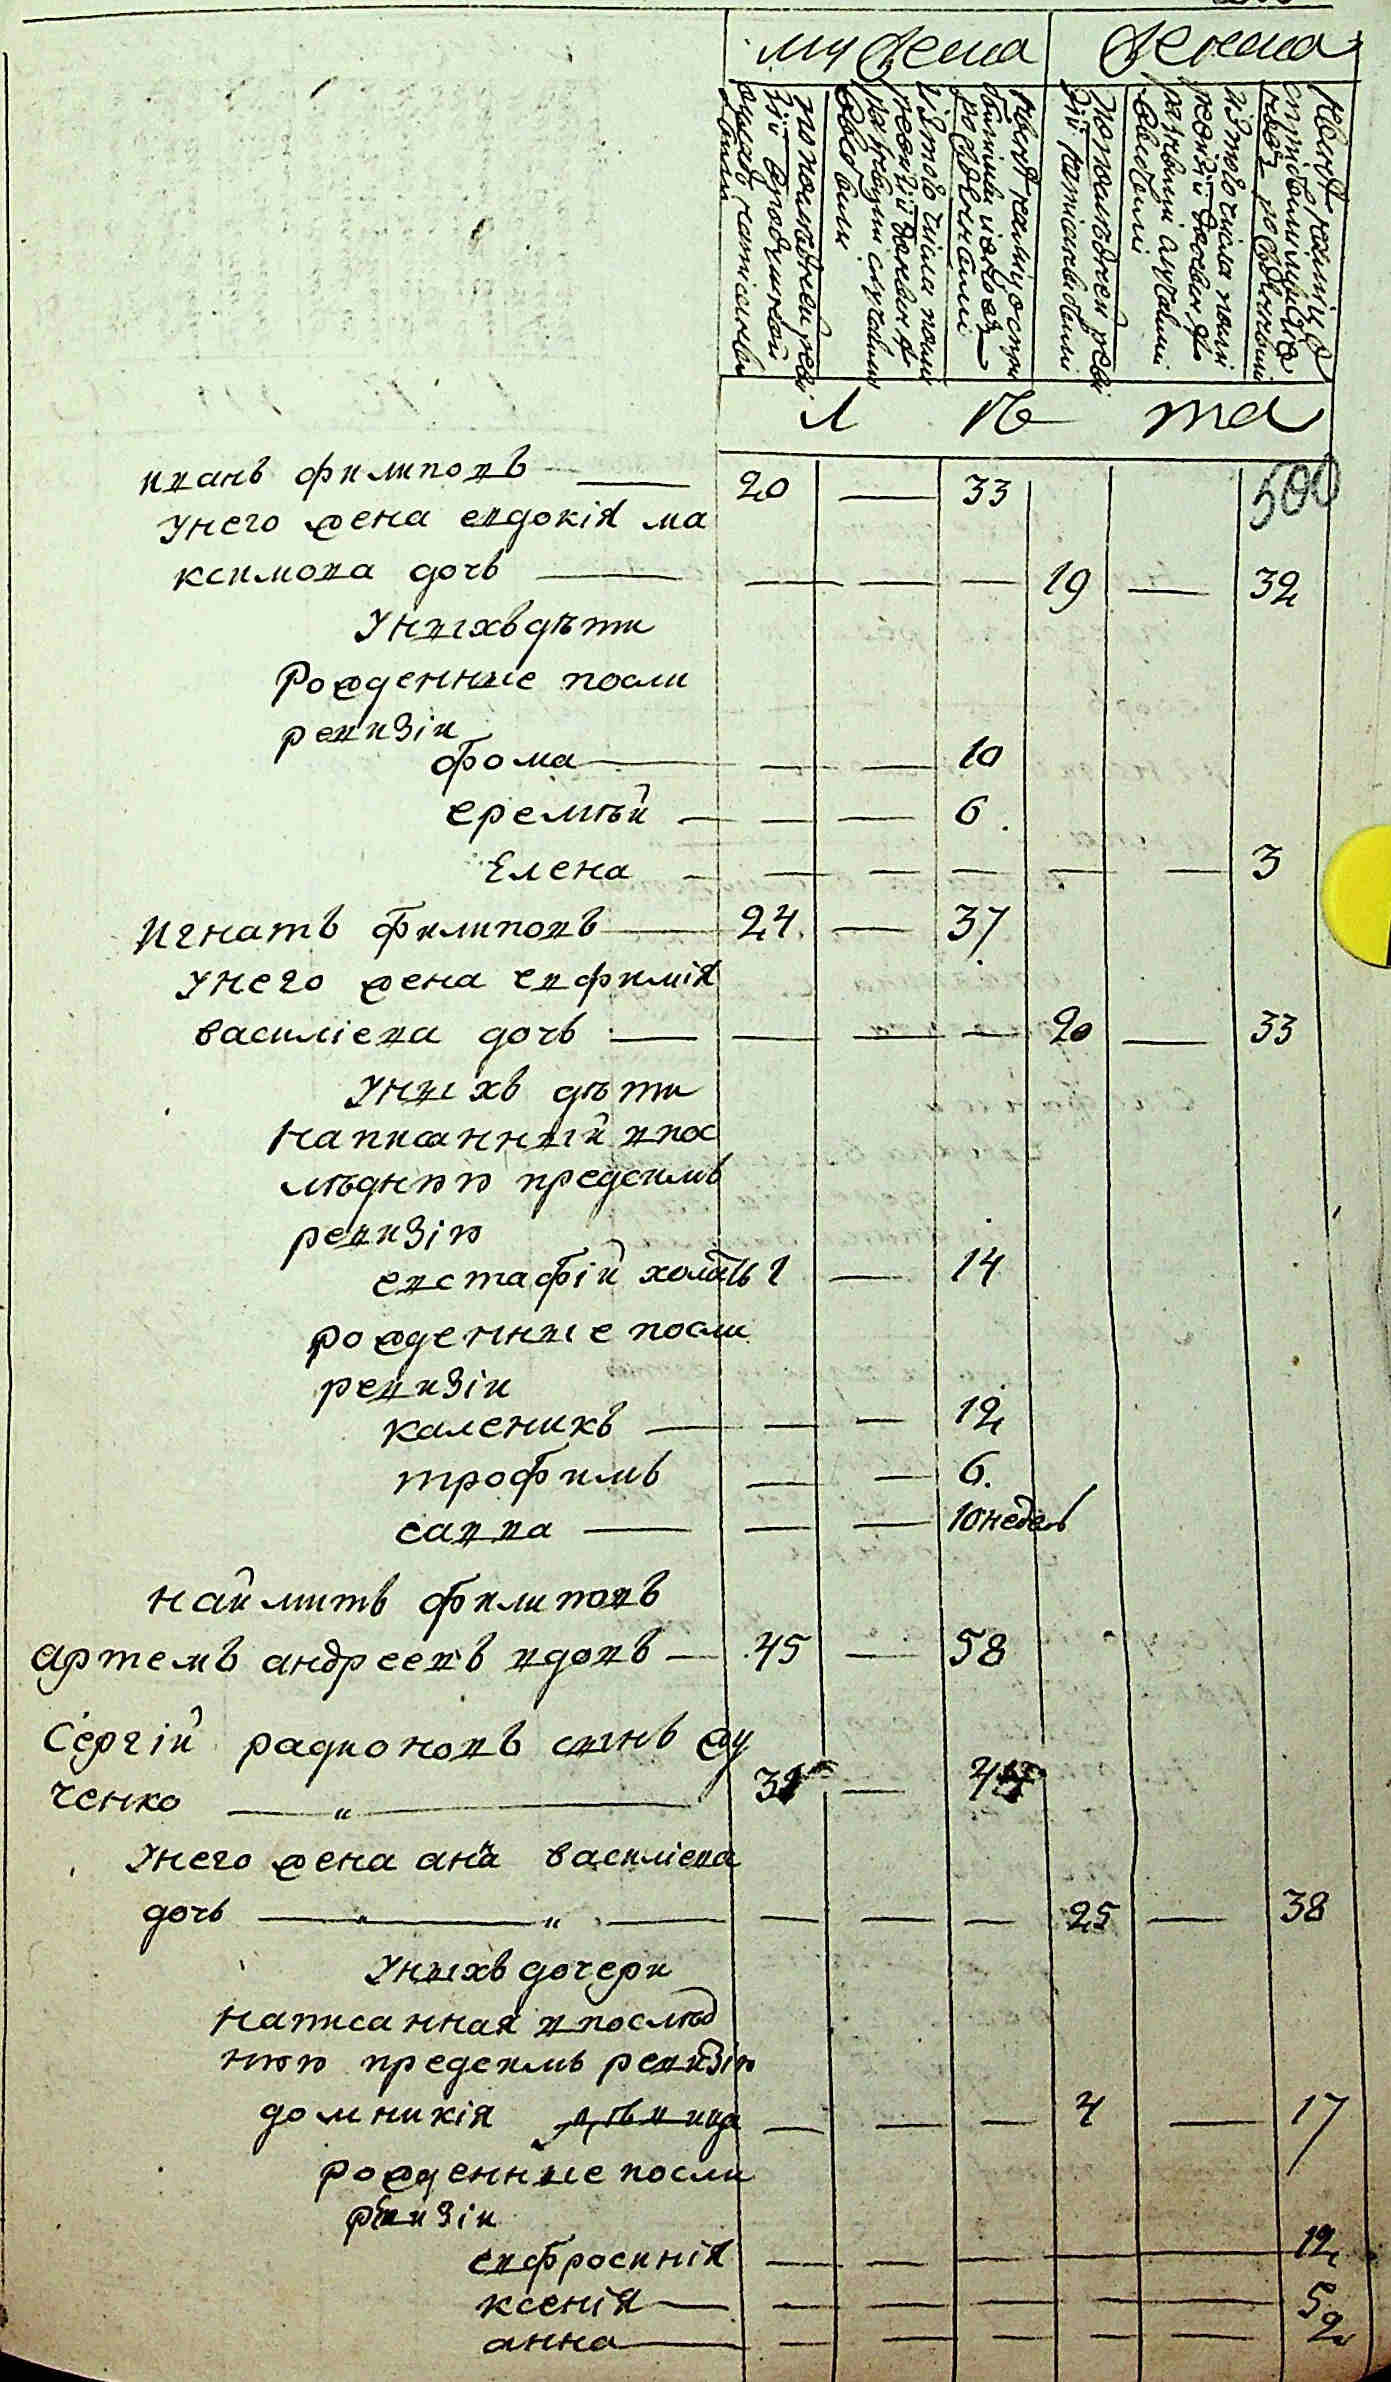 мужеска женска
по последней реви
зіи
написаны
были
из того числа после
ревизіи
разными случаями
выбыли
по последней реви
зіи написаны были
из того числа после
ревизіи
разными случаями
выбыли
лѣта
500
иванъ филиповъ — 20 — 33
унего жена евдокія ма
ксимова дочь — — — — 19 — 32
унихъ дѣти
рожденние посли
ревизіи
фома — — — 10
еремѣй — — — 6
Елена — — — — — — 3
Игнатъ филиповъ — 24 — 37
унего жена евфимія
василіева дочь — — — — 20 — 33
унихъ дѣти
написанний впос
лѣднюю предсимъ
ревизію
евстафій холостъ 1 — 14
рожденние посли
ревизіи
каленикъ — — — 12
трофимъ — — 6
савва — — — 10 недель
наймитъ филиповъ
артемъ андреевъ вдовъ — 45 — 58
Сергій радионовъ сынъ жу
ченко — " — 31 — 44
унего жена анна василіева
дочь — " — " — — — — 25 — 38
унихъ дочери
написанная впослѣд
нюю предсимъ ревизію
домникія дѣвица — — — 4 — 17
рожденние посли
ревизіи
евфросинія — — — — — 12
ксенія — — — — — — 5
анна — — — — — — 2